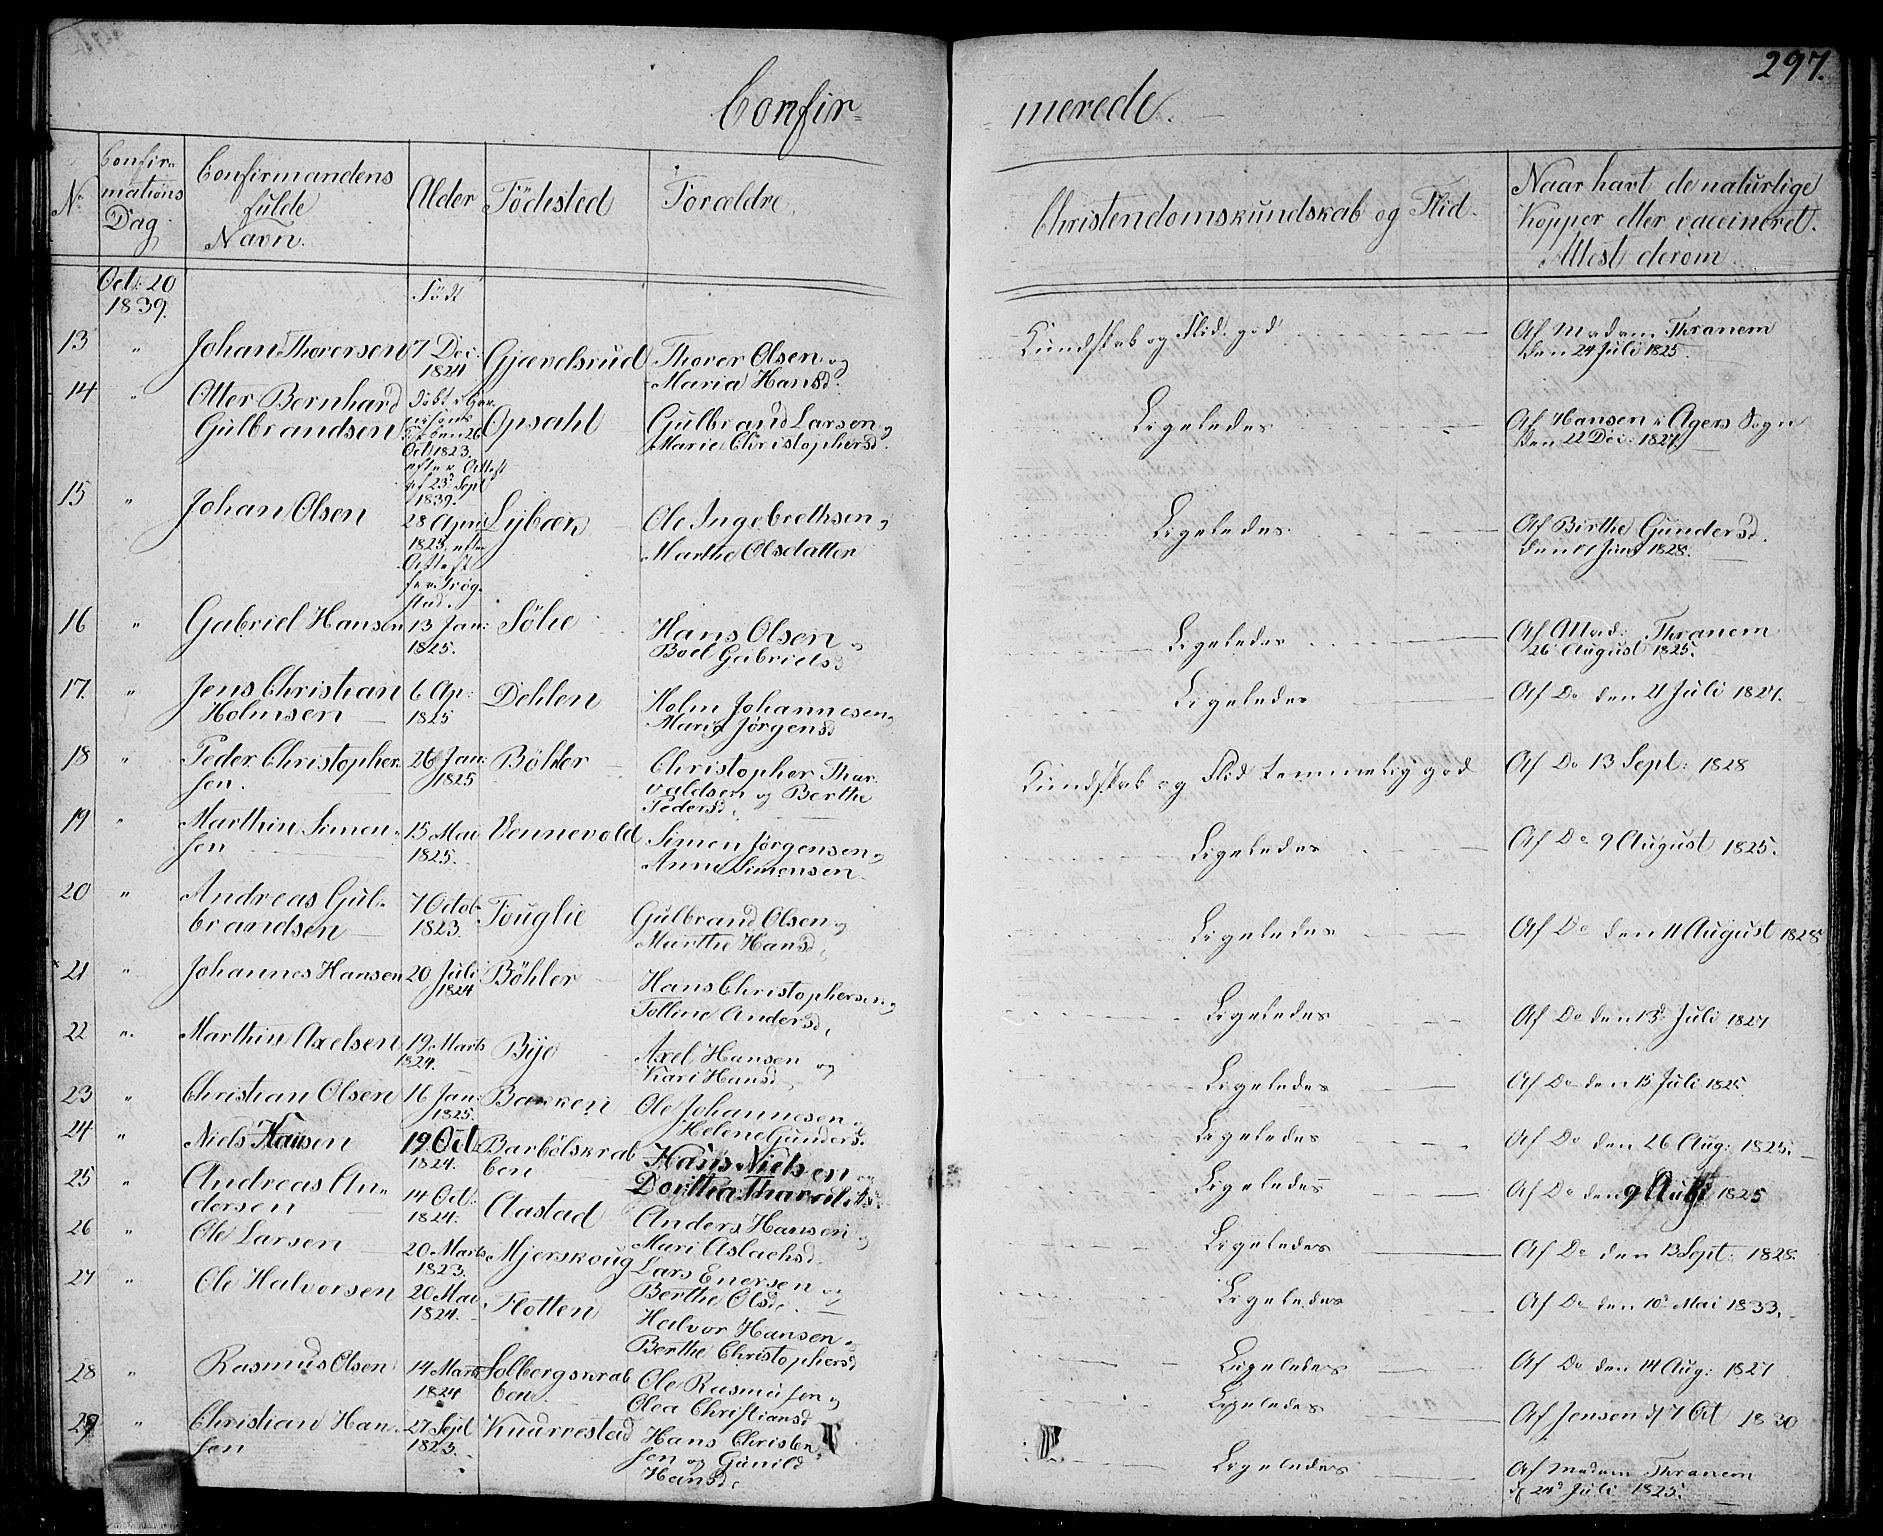 297.
Confir-
merede.
No
Confir-
mations
Dag
Confirmandens
fulde
Navn.
Alder
Födested
Forældre.
Christendomskundskab og Flid.
Naar havt de naturlige
Kopper eller vaccineret.
Attest derom
Oct: 20
1839.
Födt
13 " Johan Thorersen 7 Dec: Gjævelsrud Thorer Olsen og
1824 Maria Hansd.
Kundskab og Flid god
Af Madam Thranem
den 24 Juli 1825.
14 " Otter Bernhard
Gulbrandsen
Döbt i Gar
nisons
den 26
Oct 1823.
efter Attest
af 23d Sept
1839.
Opsahl
Gulbrand Larsen og
Marie Christophersd.
Ligeledes
Af Hansen i Agers Sogn
den 22 Dec: 1827.
15 " Johan Olsen
28 April
1825, efter
Attest
fra Trög-
stad.
Lybæk
Ole Ingebrethsen og
Marthe Olsdatter
Ligeledes
Af Birthe Gundersd.
den 17 Juni 1828.
16 " Gabriel Hansen 13 Jan: Sölie Hans Olsen og
1825. Boel Gabrielsd
Ligeledes
Af Mad: Thranem
26 August 1825.
17. " Jens Christian 6 Ap: Dehlen Holm Johannesen og
Holmsen 1825 Maria Jörgensd
Ligeledes
Af Do den 21 Juli 1827.
18 " Peder Christopher 26 Jan: Böhler Christopher Thor
sen. 1825 valdsen og Berthe
Pedersd.
Kundskab og Flid temmelig god
Af Do 13 Sept: 1828
19 " Marthin Simen- 15 Mai Vennevold Simen Jörgensen og
sen 1825. Anne Simensen.
Ligeledes
Af Do 9 August 1825.
20 " Andreas Gul- 7 Octob. Fouglie Gulbrand Olsen og
brandsen 1823. Marthe Hansd.
Ligeledes
Af Do den 11 August 1828
21 " Johannes Hansen 20 Juli Böhler Hans Christophersen og
1824 Tolline Andersd.
Ligeledes
Af Do den 13d Juli 1827
22 " Marthin Axelsen 19 Marts Bye Axel Hansen og
1824. Kari Hansd
Ligeledes
Af Do den 15 Juli 1825
23 " Christian Olsen 16 Jan: Bakken Ole Johannesen og
1825. Helene Gundersd.
Ligeledes
Af Do den 26 Aug: 1825.
24 " Niels Hansen 19 Oct Barbölskrab Hans Nielsen og
1824. ben Dorthea Tharalds
Ligeledes
Af Do den 9 Aug 1825
25 " Andreas An- 14 Oct: Aastad Anders Hansen og
dersen 1824. Mari Aslachsd.
Ligeledes
Af Do den 13 Sept: 1828.
26 " Ole Larsen 20 Marts Mjerskoug Lars Enersen og
1823. Berthe Olsd.
Ligeledes
Af Do den 10d Mai 1833.
27 " Ole Halvorsen 20 Mai Flotten Halvor Hansen og
1824. Berthe Christophersd
Ligeledes
Af Do den 14 Aug: 1827
28 " Rasmus Olsen 14 Marts Solbergskrab Ole Rasmussen og
1824 ben Olea Christiansd
Ligeledes
Af Jensen d 7 Oct 1830
29 " Christian Han- 27 Sept Knarrestad Hans Christen
sen 1823. sen og Gunild
Hansd.
Ligeledes
Af Madam Thranem
d 24d Juli 1825.